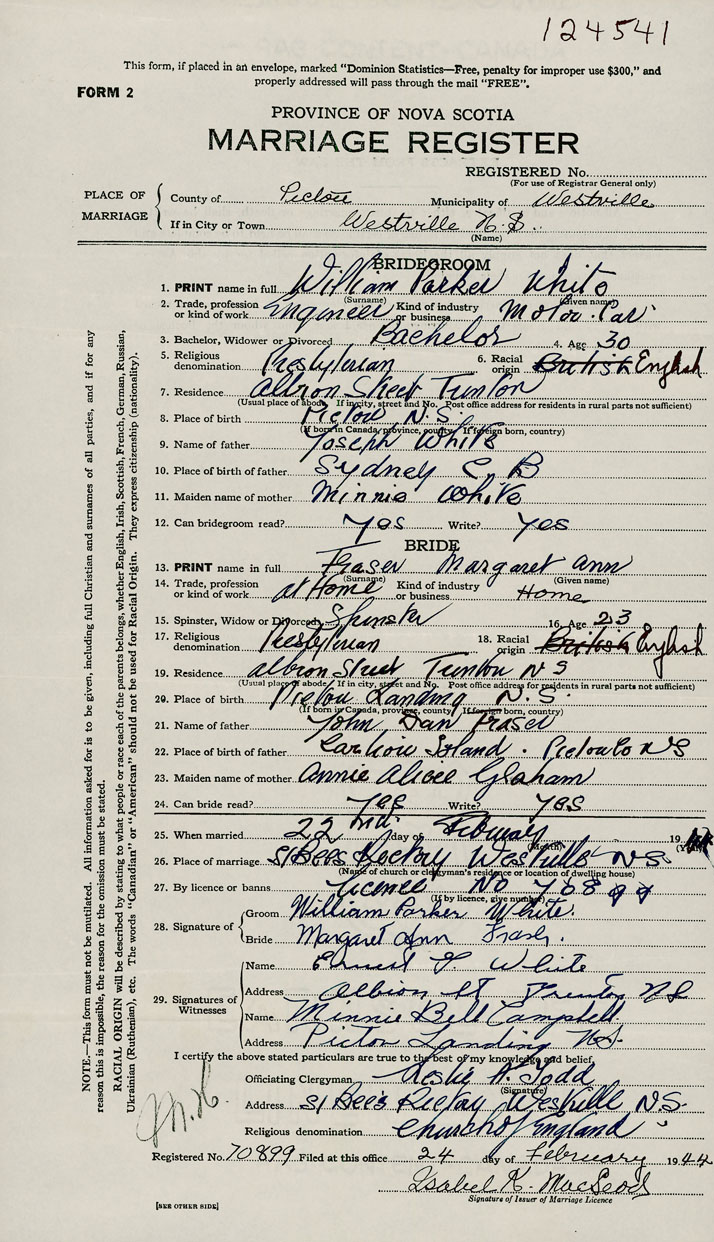 124541
This form, if placed in an envelope, marked "Dominion Statistics—Free, penalty for improper use $300," and
properly addressed will pass through the mail "FREE".
FORM 2
PROVINCE OF NOVA SCOTIA
MARRIAGE REGISTER
REGISTERED No.
(For use of Registrar General only)
PLACE OF MARRIAGE
County of Pictou Municipality of Westville
If in City or Town Westville N.S.
(Name)
BRIDEGROOM
1. PRINT name in full William Parker White
(Surname) (Given name)
2. Trade, profession or kind of work Engineer Kind of industry or business Motor Car
3. Bachelor, Widower or Divorced Bachelor 4. Age 30
5. Religious denomination Presbyterian 6. Racial origin British English
7. Residence Albion Street Trenton
(Usual place of abode. If in city, street and No. Post office address for residents in rural parts not sufficient)
8. Place of birth Pictou N.S.
(If born in Canada, province, county. If foreign born, country)
9. Name of father Joseph White
10. Place of birth of father Sydney C. B
11. Maiden name of mother Minnie White
12. Can bridegroom read? Yes Write? Yes
BRIDE
13. PRINT name in full Fraser Margaret Ann
(Surname) (Given name)
14. Trade, profession or kind of work at Home Kind of industry or business Home
15. Spinster, Widow or Divorced Spinster 16. Age 23
17. Religious denomination Presbyterian 18. Racial origin British English
19. Residence Albion Street Trenton N S
(Usual place of abode. If in city, street and No. Post office address for residents in rural parts not sufficient)
20. Place of birth Pictou Landing N.S.
(If born in Canada, province, county. If foreign born, country)
21. Name of father John Dan Fraser
22. Place of birth of father Caribou Island. Pictou Co N S
23. Maiden name of mother Annie Alice Graham
24. Can bride read? Yes Write? Yes
25. When married 22 nd. day of February 19
(Month) (Year)
26. Place of marriage St Bees Rectory Westville N.S.
(Name of church or clergyman's residence or location of dwelling house)
27. By licence or banns Licence No 70899
(If by licence, give number)
28. Signature of
Groom William Parker White.
Bride Margaret Ann Fraser.
29. Signatures of Witnesses
Name Ernest White
Address Albion St Trenton N S
Name Minnie Bell Campbell
Address Pictou Landing N.S.
I certify the above stated particulars are true to the best of my knowledge and belief.
Officiating Clergyman Leslie Todd
(Signature)
Address St Bee's Rectory Westville N.S.
Religious denomination Church of England
Registered No. 70899 Filed at this office 24 day of February 1944
Isabel K. MacLeod
Signature of Issuer of Marriage Licence
[SEE OTHER SIDE]
NOTE.—This form must not be mutilated. All information asked for is to be given, including full Christian and surnames of all parties, and if for any
reason this is impossible, the reason for the omission must be stated.
RACIAL ORIGIN will be described by stating to what people or race each of the parents belongs, whether English, Irish, Scottish, French, German, Russian,
Ukrainian (Ruthenian), etc. The words "Canadian" or "American" should not be used for Racial Origin. They express citizenship (nationality).